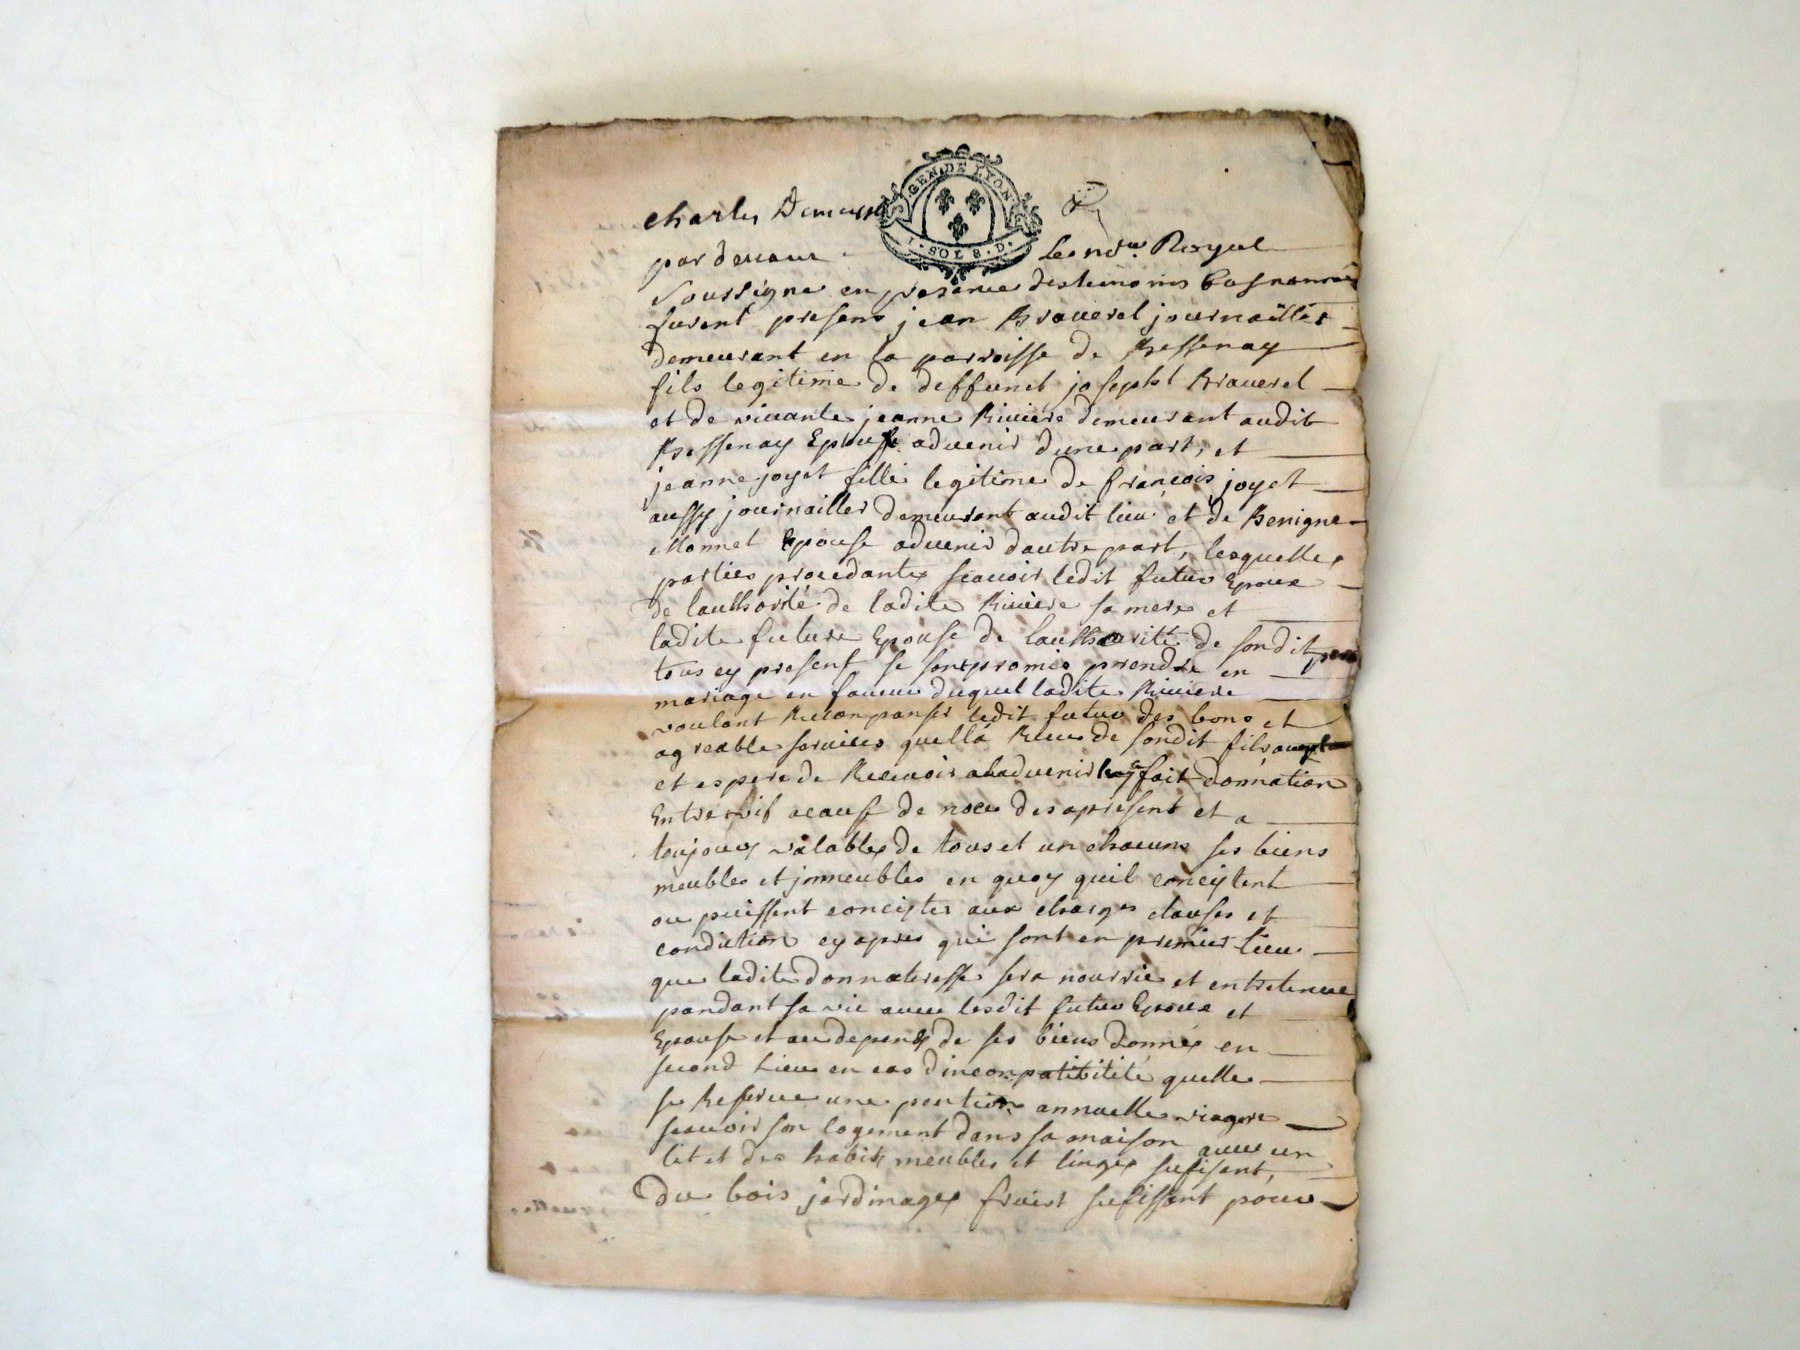 GEN. DE LYON
1. SOL 8. D.
charles
par devant Le no.re Royal
soussigné en presence des temoins bas nommés
furent presens jean Braverel journaillier
demeurant en la parroisse de Bessenay
fils legitime de deffunct joseph Braverel
et de vivante jeanne Riviere demeurant audit
Bessenay Epoux advenir dune part, et
jeanne joyet fille legitime de françois joyet
aussy journaillier demeurant audit lieu et de Benigne
Monnet Epouse advenir dautre part, lesquelles
parties procedantes scavoir ledit futur Epoux
de lauthorité de ladite Riviere sa mere et
ladite future Epouse de lauthorité de sondit pere
tous cy present se sont promis prendre en
mariage en faveur duquel ladite Riviere
voulant Recompanser ledit futur des bons et
agreable services quella Receu de sondit fils
et espere de Recevoir aladvenir fait donnation
Entre vif acause de noces des apresent et a
toujours valables de tous et un chacuns ses biens
meubles et jmmeubles en quoy quil concistent
ou puissent concister aux charges clauses et
condition cy apres qui sont en premier lieu
que ladite donnateresse sera nourrie et entretenue
pandant sa vie avec lesdit futur Epoux et
Epouse et au depend de ses biens donnés en
second Lieu en cas dincompatibilité quelle
se Reserve une pention annuelle viagere
scavoir son logement dans sa maison avec un
lit et des habits meubles et linges sufisant,
du bois jardinages fruist sufissent pour